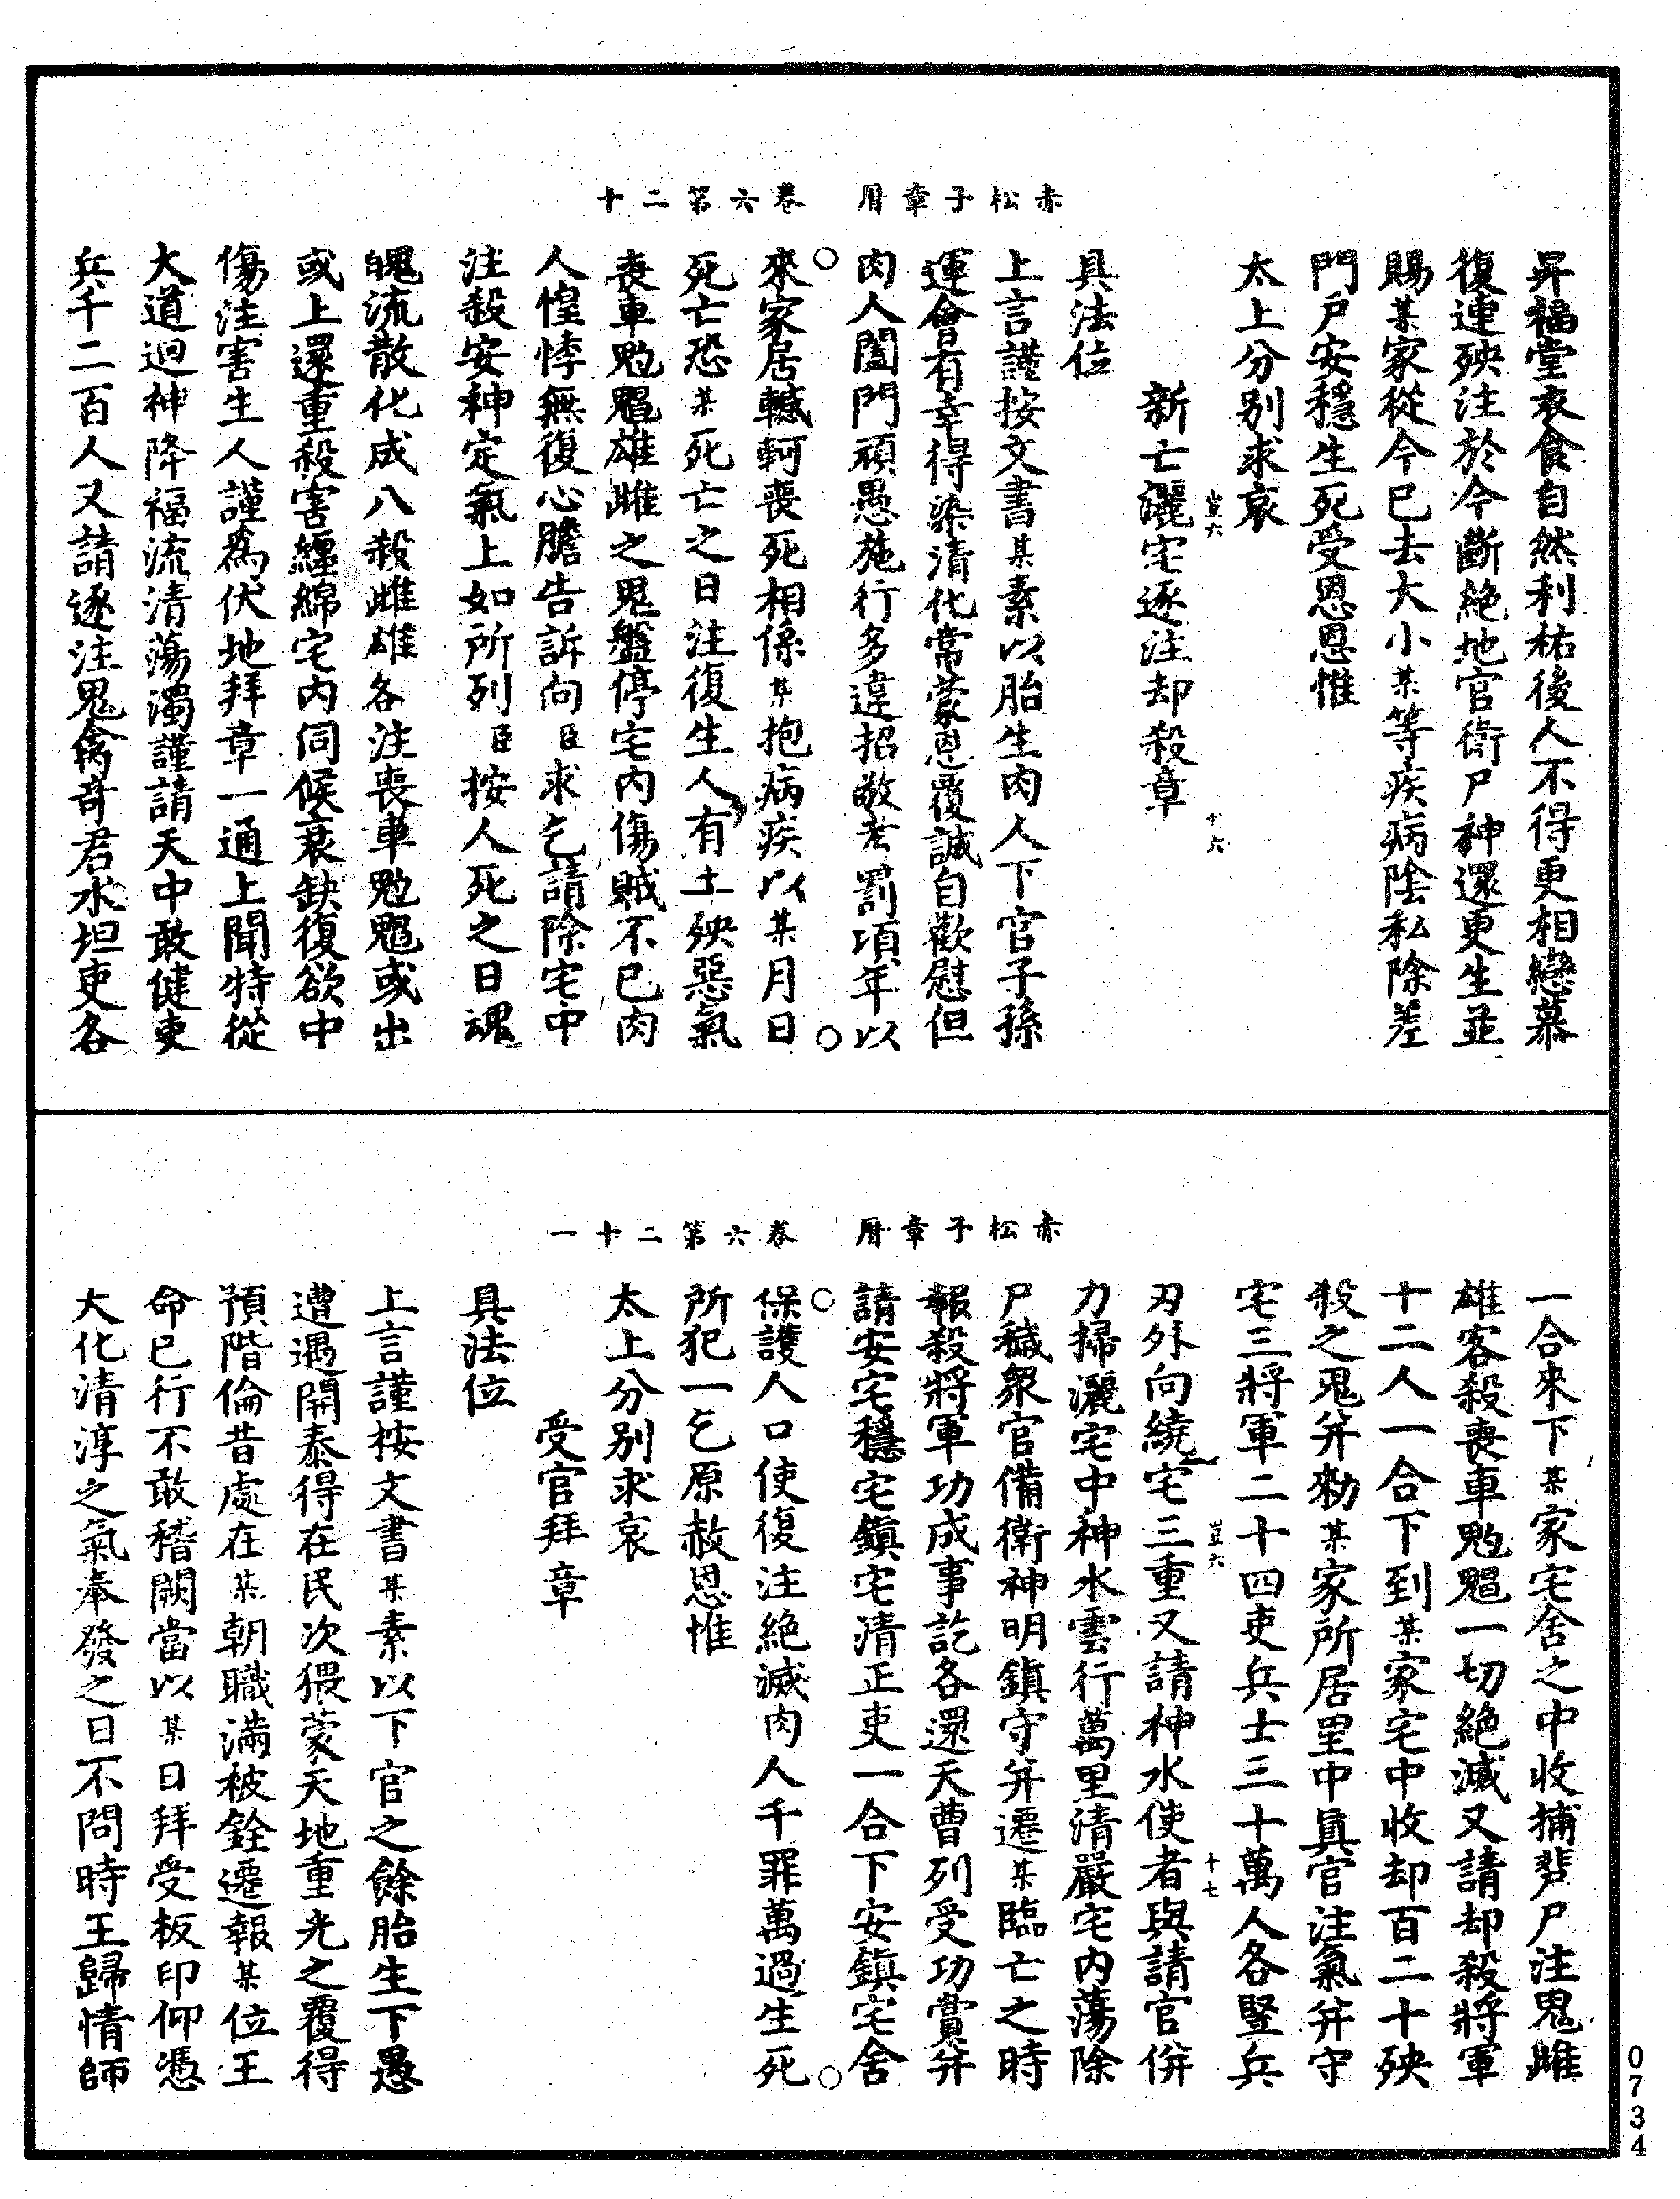 赤松子章曆　卷六第二十
昇福堂衣食自然利祐後人不得更相戀慕
復連殃注於今斷絕地官衛尸神還更生並
賜某家從今已去大小某等疾病陰私除差
門戶安穩生死受恩恩惟
太上分別求哀
豈六　十六
新亡灑宅逐注却殺章
具法位
上言謹按文書某素以胎生肉人下官子孫
運會有幸得染清化常蒙恩覆誠自歡慰但
肉人闔門頑愚施行多違招敬考罰項年以
來家居轗軻喪死相係某抱病疾以某月日
死亡恐某死亡之日注復生人有土殃惡氣
喪車魁魋雄雌之鬼盤停宅內傷賊不已肉
人惶悸無復心膽告訴向臣求乞請除宅中
注殺安神定氣上如所列臣按人死之日魂
魄流散化成八殺雌雄各注喪車魁魋或出
或上還重殺害纏綿宅內伺候衰缺復欲中
傷注害生人謹為伏地拜章一通上聞特從
大道迴神降福流清蕩濁謹請天中敢健吏
兵千二百人又請逐注鬼禽奇君水坦吏各
赤松子章曆　卷六第二十一
一合來下某家宅舍之中收捕尹尸注鬼雌
雄客殺喪車魁魋一切絕滅又請却殺將軍
十二人一合下到某家宅中收却百二十殃
殺之鬼并勑某家所居里中真官注氣并守
宅三將軍二十四吏兵士三十萬人各豎兵
豈六　十七
刃外向繞宅三重又請神水使者與請官併
力掃灑宅中神水雲行萬里清嚴宅內蕩除
尸穢眾官備衛神明鎮守并遷某臨亡之時
報殺將軍功成事訖各還天曹列受功賞并
請安宅穩宅鎮宅清正吏一合下安鎮宅舍
保護人口使復注絕滅肉人千罪萬過生死
所犯一乞原赦恩惟
太上分別求哀
受官拜章
具法位
上言謹按文書某素以下官之餘胎生下愚
遭遇開泰得在民次猥蒙天地重光之覆得
預階倫昔處在某朝職滿被銓遷報某位王
命已行不敢稽闕當以某日拜受板印仰憑
大化清淳之氣奉發之日不問時王歸情師
0734